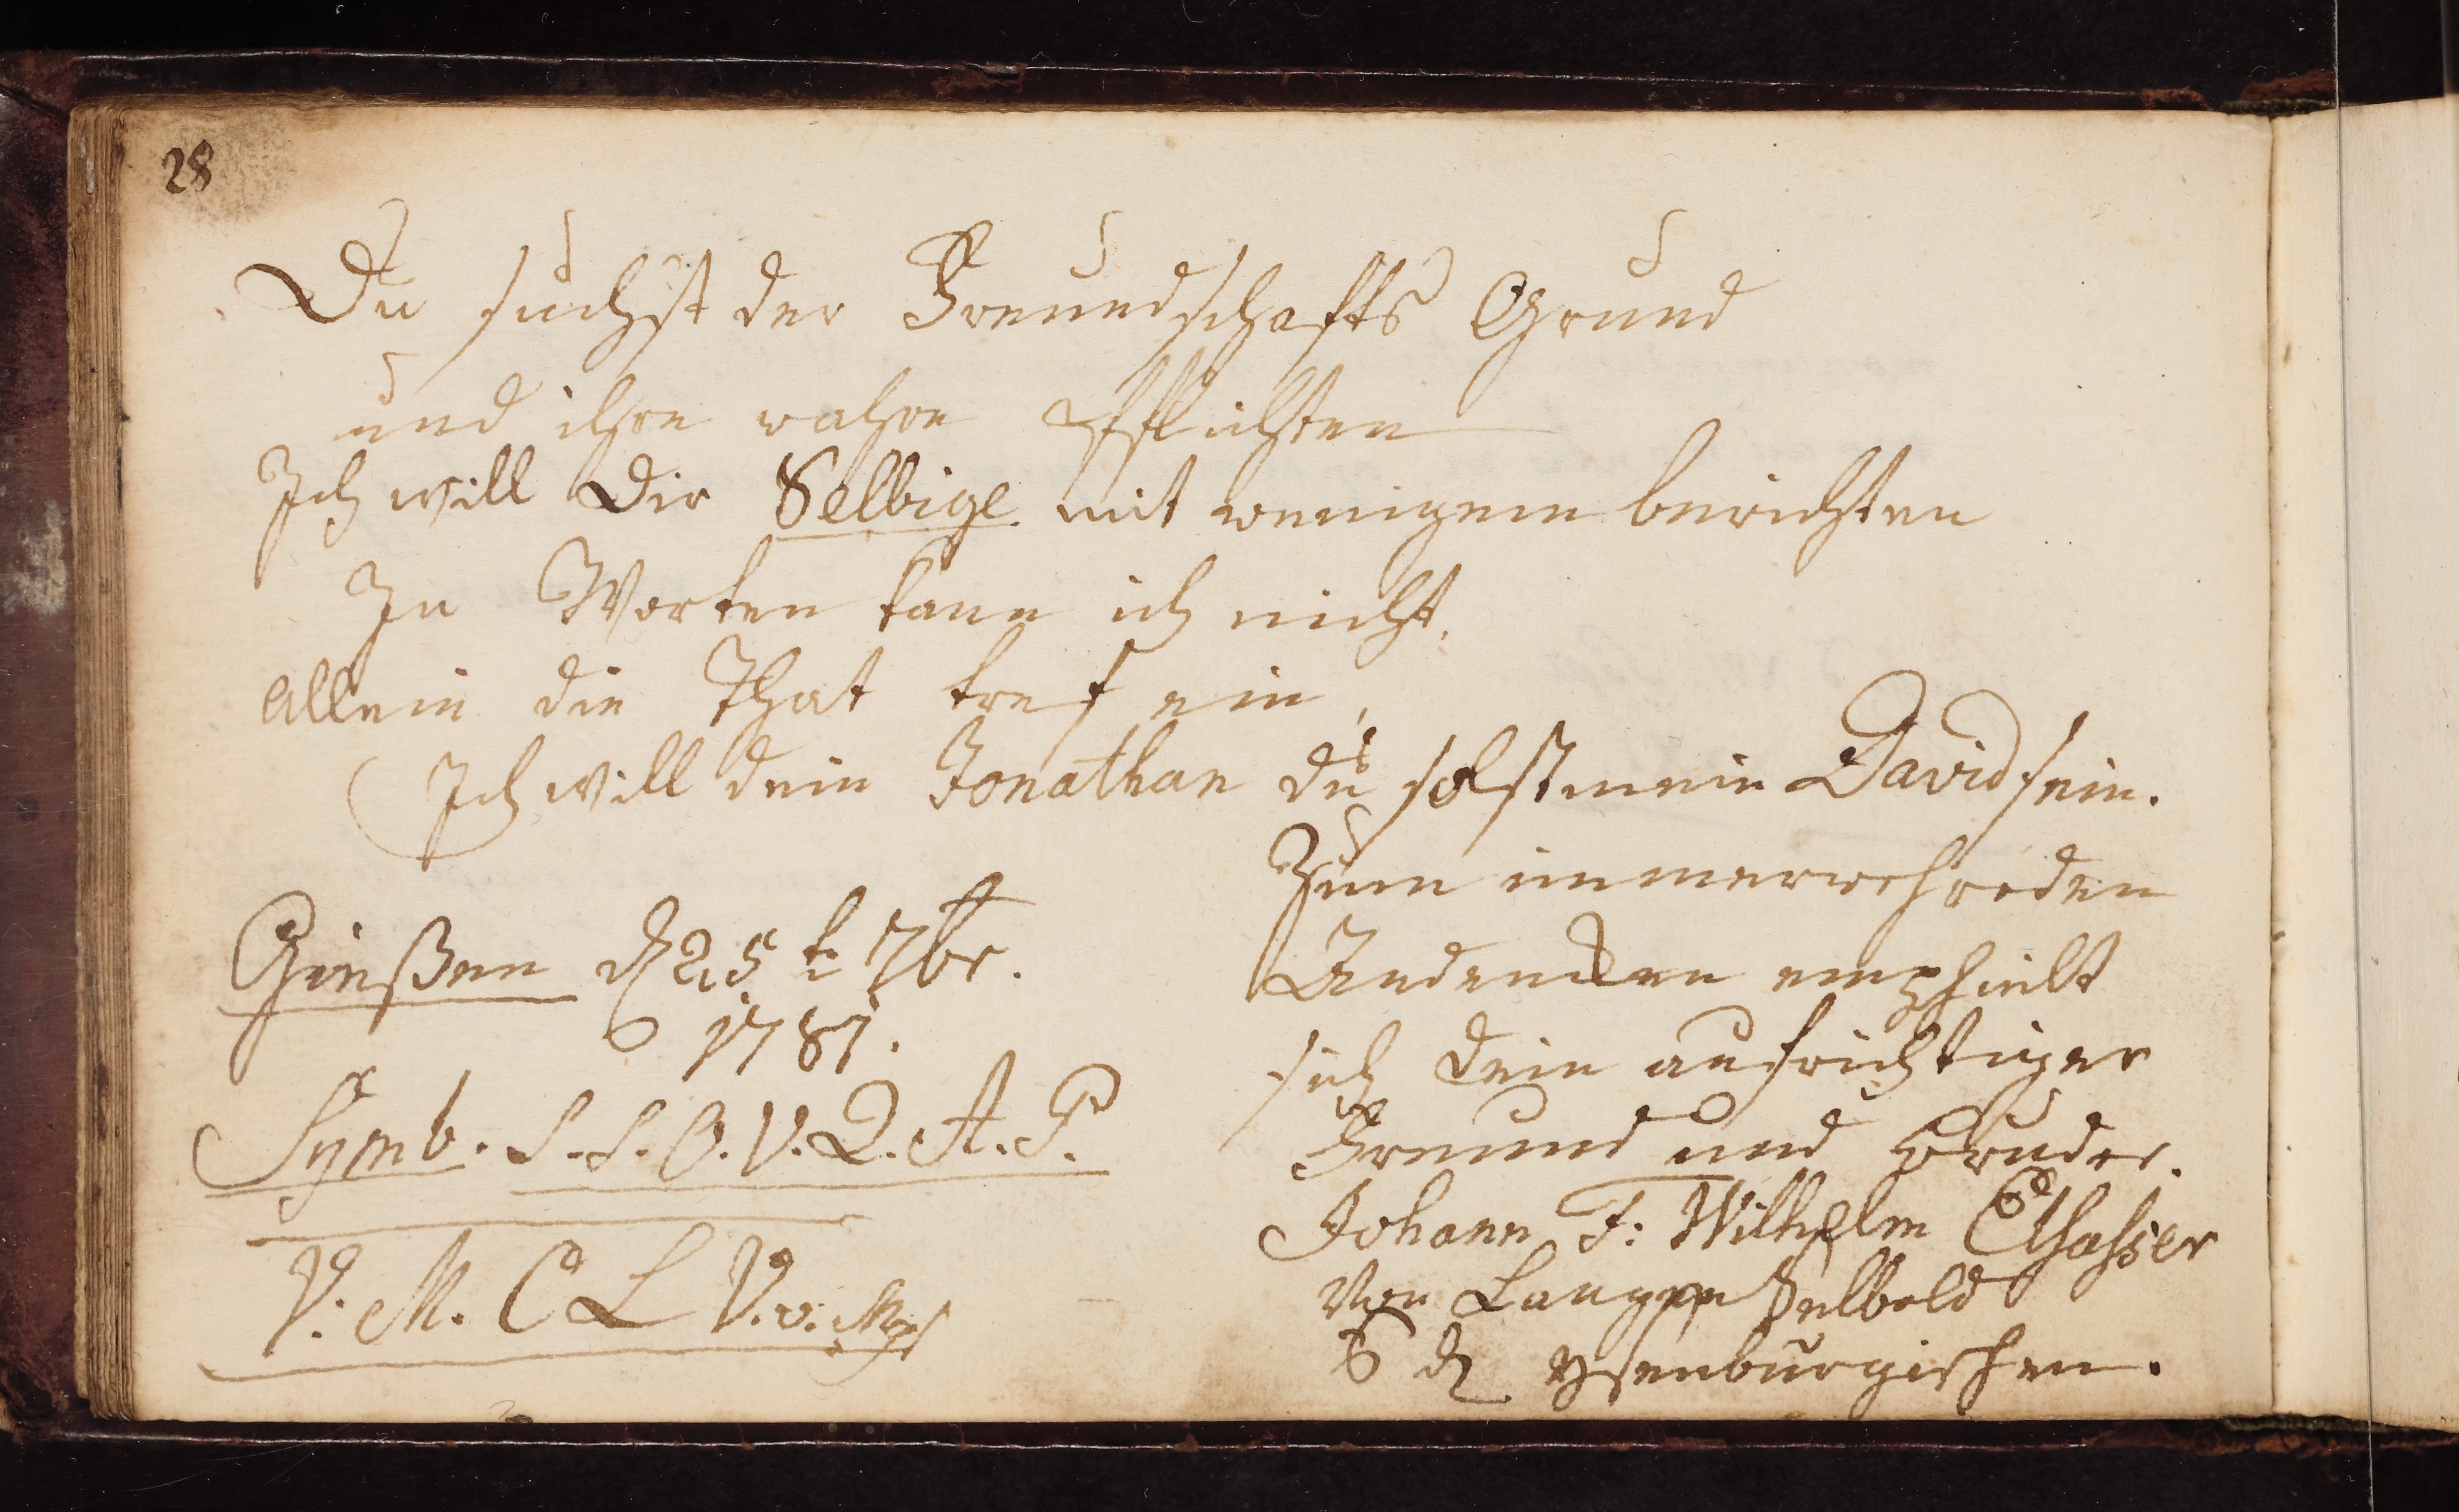 28
Du suchst der Freundschafts Grund
und ihre wahre Pflichten
Ich will Dir Selbige mit wenigem berichten
In Worten kann ich nicht.
Allein die That tref ein,
Ich will dein Jonathan du solst mein David sein.
Gießen d 25 t 7br.
1781.
Symb. S. S. O. V. Q. A. P.
V. M. C L V. v.
Zum immerwehreden
Andencken emphielt
sich Dein aufrichtiger
Freund und Bruder.
Johann F: Wilhelm Elsasser
Von Langen Selbold
d Ysenburgischen.